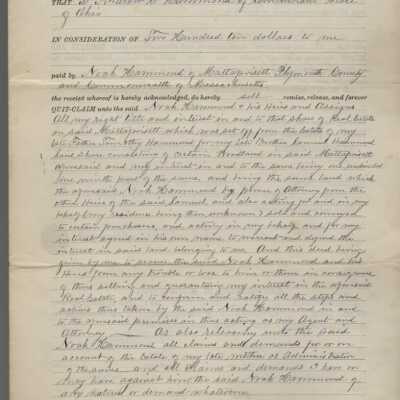 THAT I, Andrew H. Hammond of Cincinnati State
of Ohio
IN CONSIDERATION OF Two Hundred ten dollars to me
paid by Noah Hammond of Mattapoisett Plymouth County
and Commonwealth of Massachusetts
the receipt whereof is hereby acknowledged, do hereby sell remise, release, and forever
QUIT-CLAIM unto the said Noah Hammond & his Heirs and Assigns
All my right title and interest in and to that share of Real Estate
in said Mattapoisett which was set off from the Estate of my
late Father Timothy Hammond for my late Brother Samuel Hammond
said share consisting of certain Woodland in said Mattapoisett
aforesaid and my interest in and to the same being an undivided
one ninth part of the same, and being the same land which
the aforesaid Noah Hammond by power of Attorney from the
other Heirs of the said Samuel and also acting for and in my
behalf (my residence being then unknown) sold and conveyed
to certain purchasers, and acting in my behalf and for my
interest signed in his own name to warrant and defend the
interest in said land belonging to me. And this deed being
given by me to secure the said Noah Hammond and his
Heirs from any trouble or loss to him or them in consequence
of thus selling and guaranteeing my interest in the aforesaid
Real Estate, and to confirm and ratify all the steps and
actions thus taken by the said Noah Hammond in and
to the aforesaid premises in thus acting as my Agent and
Attorney. As also releasing unto the said
Noah Hammond all claims and demands for or on
account of the Estate of my late mother as Administrator
of the same and all claims and demands I have or
may have against him the said Noah Hammond of
any nature or demand whatsoever